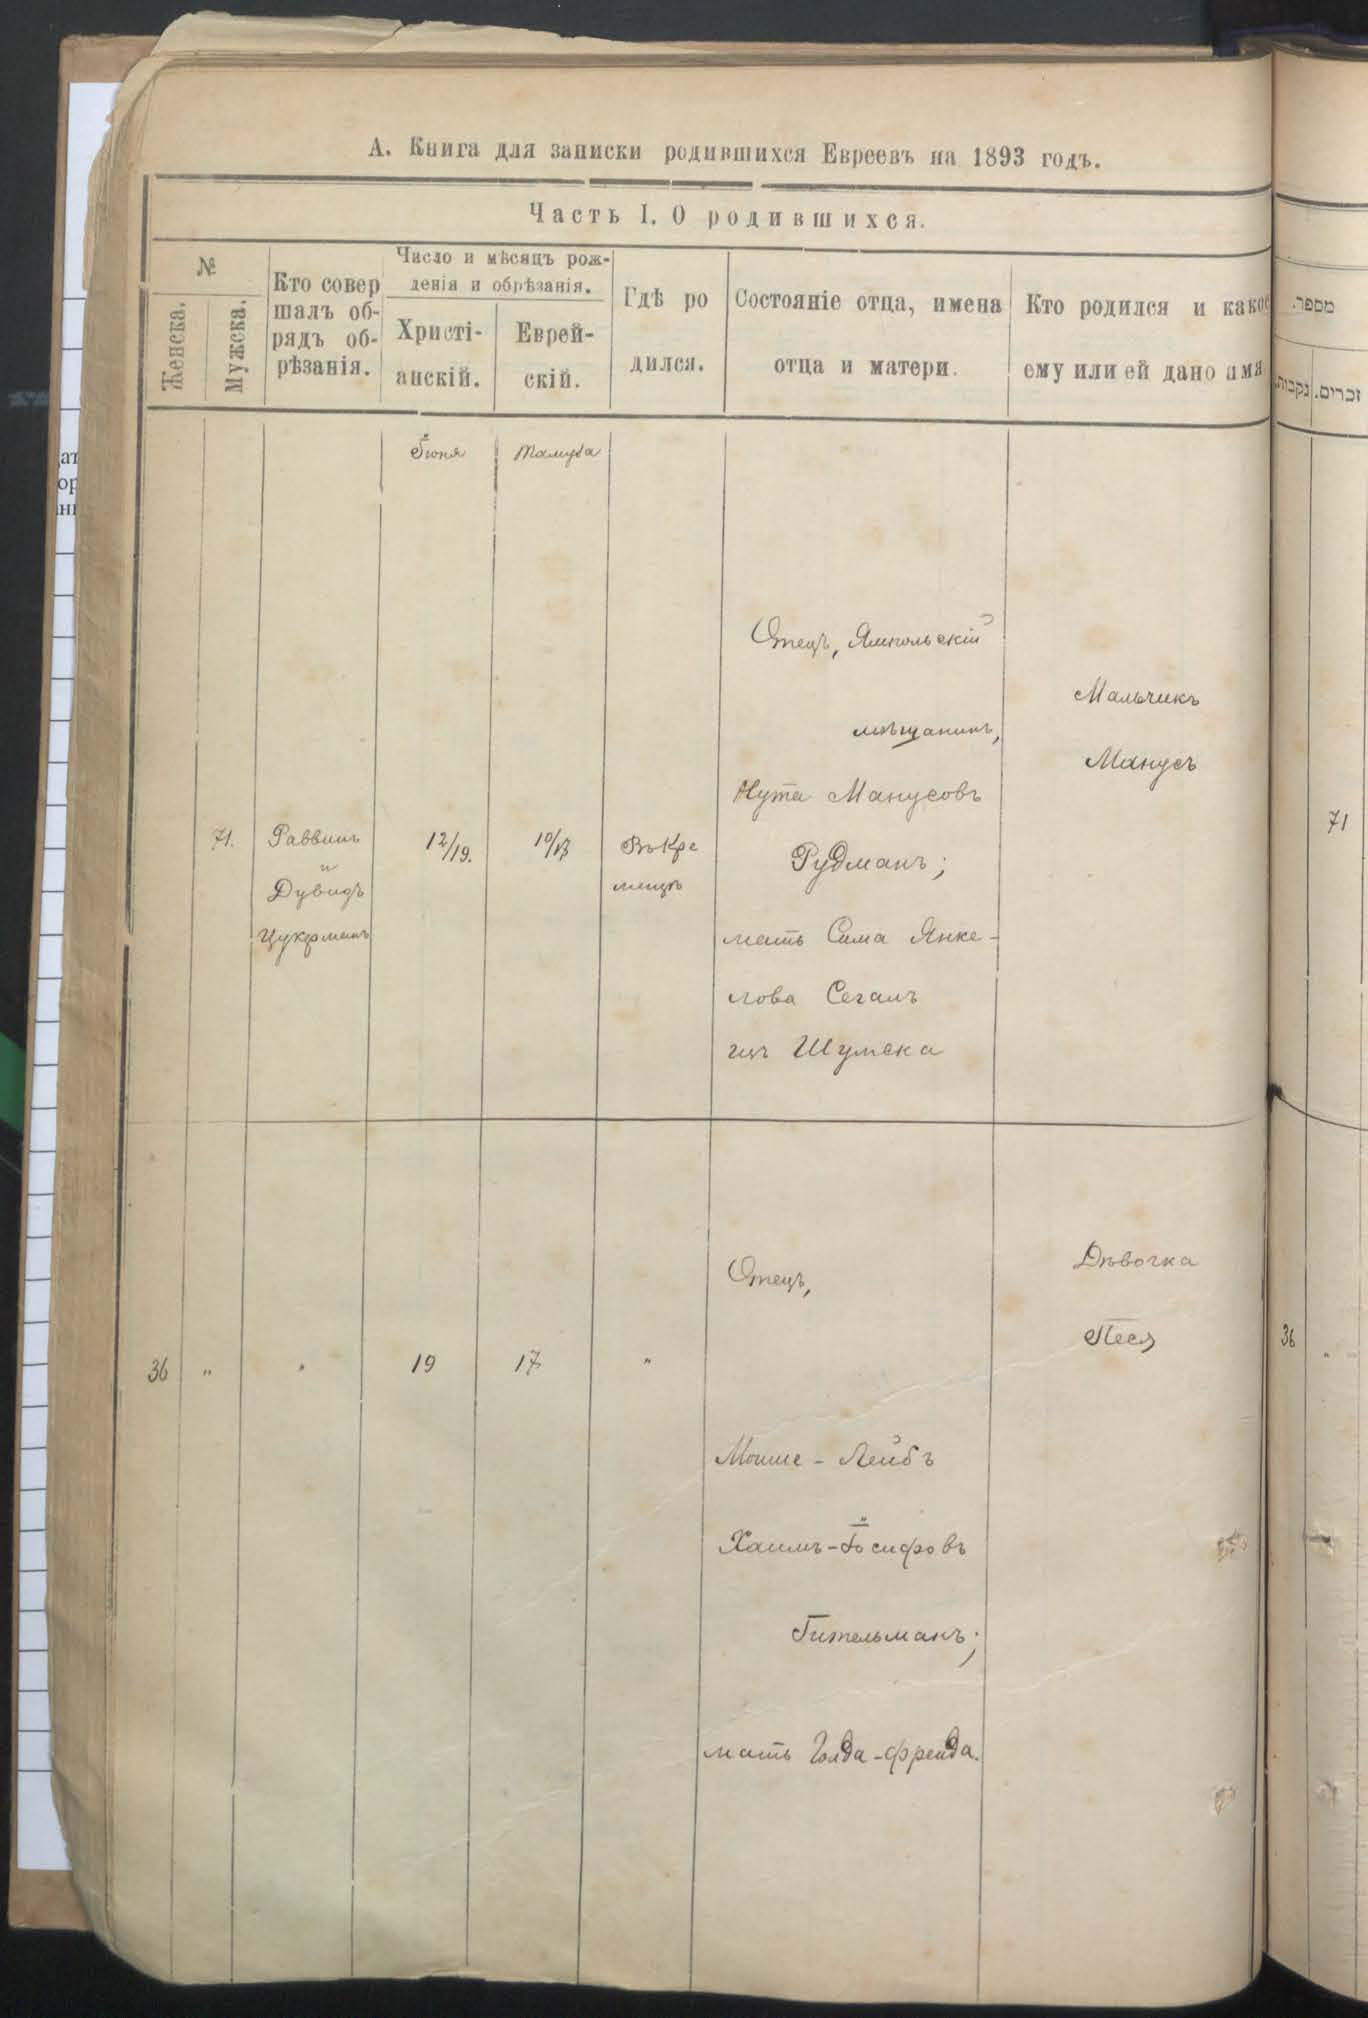 А. Книга для записки родившихся Евреевъ на 1893 годъ.
Часть I. О родившихся.
№
Женска.
Мужска.
Кто совер
шалъ об-
рядъ об-
рѣзанія.
Число и мѣсяцъ рож-
денія и обрѣзанія.
Христі-
анскій.
Еврей-
скій.
Гдѣ ро
дился.
Состояніе отца, имена
отца и матери.
Кто родился и какое
ему или ей дано имя
Іюня
Тамуза
71.
Раввинъ
и
Дувидъ
Цукерманъ
12/19.
10/17
Въ Кре
менцѣ
Отецъ, Ямпольскій
мѣщанинъ,
Нута Манусовъ
Рудманъ;
мать Сима Янке-
лова Сегалъ
изъ Шумска
Мальчикъ
Манусъ
36
"
"
19
17
"
Отецъ,
Мошле - Лейбъ
Хаимъ-Іосифовъ
Гительманъ;
мать Голда-Фрейда.
Дѣвочка
Песя
מספר.
נקבות.
זכרים.
71
36
"